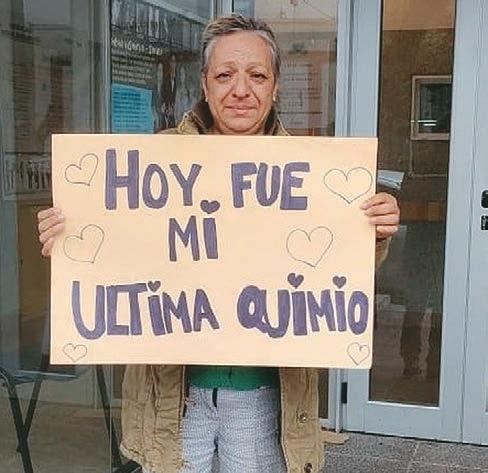 HOY FUE
MI
ULTIMA QUIMIO